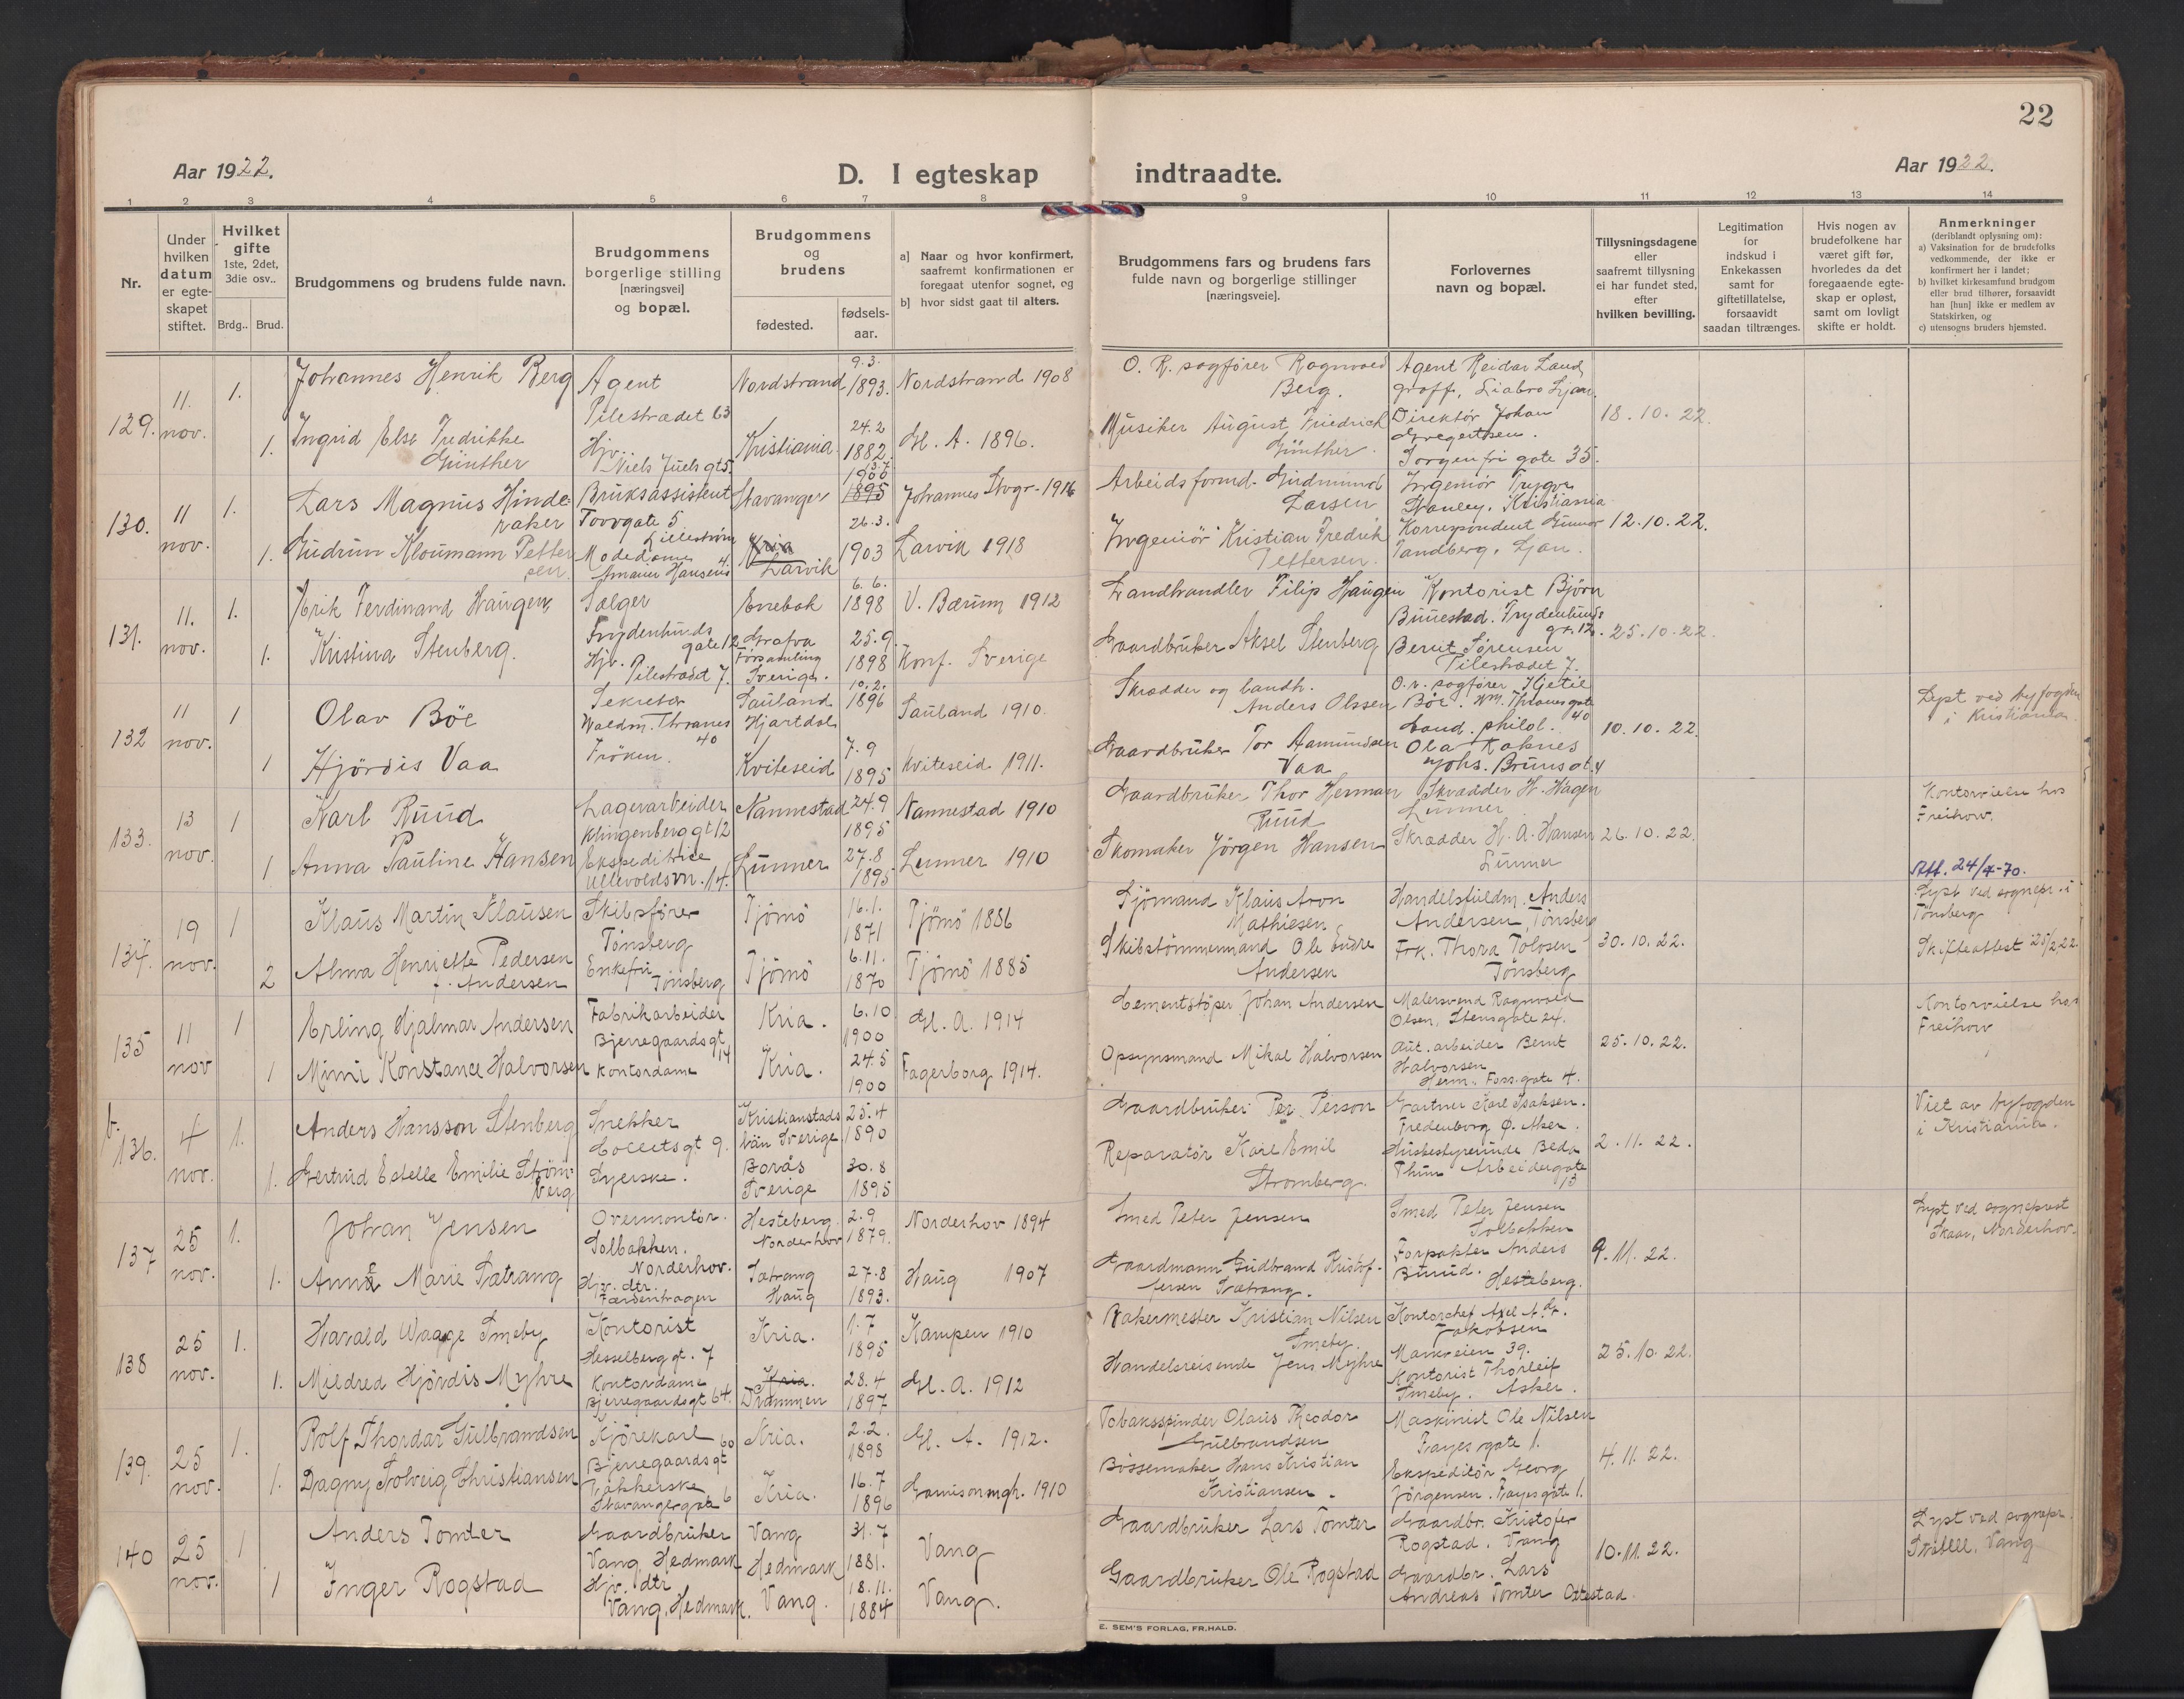 22
Aar 1922.
D. I egteskap indtraadte.
Aar 1922.
1 2 3 4 5 6 7 8 9 10 11 12 13 14
Nr.
Under hvilken datum er egteskapet stiftet.
Hvilket gifte 1ste, 2det, 3die osv..
Brdg.. Brud.
Brudgommens og brudens fulde navn.
Brudgommens borgerlige stilling [næringsvei] og bopæl.
Brudgommens og brudens
fødested. fødselsaar.
a] Naar og hvor konfirmert, saafremt konfirmationen er foregaat utenfor sognet, og
b] hvor sidst gaat til alters.
Brudgommens fars og brudens fars fulde navn og borgerlige stillinger [næringsveie].
Forlovernes navn og bopæl.
Tillysningsdagene eller saafremt tillysning ei har fundet sted, efter hvilken bevilling.
Legitimation for indskud i Enkekassen samt for giftetillatelse, forsaavidt saadan tiltrænges.
Hvis nogen av brudefolkene har været gift før, hvorledes da det foregaaende egteskap er opløst, samt om lovligt skifte er holdt.
Anmerkninger (deriblandt oplysning om):
a) Vaksination for de brudefolks vedkommende, der ikke er konfirmert her i landet;
b) hvilket kirkesamfund brudgom eller brud tilhører, forsaavidt han [hun] ikke er medlem av Statskirken, og
c) utensogns bruders hjemsted.
129. 11. nov. 1. Johannes Henrik Berg Agent Pilestrædet 63 Nordstrand 9.3. 1893. Nordstrand 1908 O. R. sagfører Ragnvald Berg. Agent Reidar Land graff, Liabro Ljan. 18.10.22.
1. Ingrid Else Fredrikke Günther Hjv. Niels Juels gt 5. Kristiania. 24.2 1882 Gl. A. 1896. Musiker August Friedrich Günther. Direktør Johan Gregertsen. Jorgenfri gate 35.
130. 11 nov. 1. Lars Magnus Hinderaker Bruksassistent Torvgate 5 Lillestrøm Stavanger 13.7 1900 1895 Johannes Stvgr. 1916 Arbeidsformd. Gudmund Larsen Ingeniør Trygve Stanley. Kristiania 12.10.22.
1. Gudrun Kloumann Pettersen Modedame Amauer Hansens 4. Kria Larvik 26.3. 1903 Larvik 1918 Ingeniør Kristian Fredrik Pettersen. Korrespondent Gunnar Tandberg. Ljan.
131. 11. nov. 1. Erik Ferdinand Haugen Sælger Frydenlunds gate 12 Enebak 6.6. 1898 V. Bærum 1912 Landhandler Filip Haugen Kontorist Bjørn Bunestad. Frydenlunds gt. 12. 25.10.22.
1. Kristina Stenberg. Hjv. Pilestrædet 7. Grafva Församling Sverige. 25.9 1898 Konf. Sverige Gaardbruker Aksel Stenberg Bernt Sørensen Pilestrædet 7.
132 11 nov. 1 Olav Böe Sekretær Waldm. Thranes 40 Sauland Hjartdal 10.2. 1896 Sauland 1910. Skrædder og landh. Anders Olssen O.r. sagfører Kjetil Böe. Wm. Thranes gate 40 10.10.22. Lyst ved byfogden i Kristiania.
1 Hjördis Vaa Frøken. Kviteseid 7.9 1895 Kviteseid 1911. Gaardbruker Tor Aamundsen Vaa Cand. philol. Ola Raknes Johs. Bruns gt. 4
133. 13 nov. 1 Karl Ruud Lagerarbeider Klingenberg gt 12 Nannestad 24.9 1895 Nannestad 1910 Gaardbruker Thor Herman Ruud Skrædder H. Hagen Lunner 26.10.22. Kontorvielse hos Freihow.
1 Anna Pauline Hansen Ekspeditrice Ullevoldsvn. 14. Lunner 27.8 1895 Lunner 1910 Skomaker Jörgen Hansen Skrædder H. A. Hansen Lunner Att. 24/4-70.
134. 19 nov. 1 Klaus Martin Klausen Skibsfører Tønsberg Tjömö 16.1. 1871 Tjömö 1886 Sjömand Klaus Aron Mathiesen Handelsfuldm. Anders Andersen, Tønsberg 30.10.22. Lyst ved sognepr. i Tønsberg
2 Alma Henriette Pedersen f. Andersen Enkefru Tønsberg Tjömö 6.11. 1870 Tjömö 1885 Skibstömmermand Ole Endre Andersen Frk. Thora Tolvsen Tønsberg Skifteattest 25/2.22
135 11 nov 1 Erling Hjalmar Andersen Fabrikarbeider Bjerregaards gt 14 Kria. 6.10 1900 Gl. A. 1914 Cementstøper Johan Andersen Malersvend Ragnvald Olsen, Stensgate 24. 25.10.22. Kontorvielse hos Freihow
1 Mimi Konstance Halvorsen Kontordame Kria. 24.5 1900 Fagerborg 1914. Opsynsmand Mikal Halvorsen Aut. arbeider Bernt Halvorsen Herm. Foss. gate 4.
b. 136. 4 nov. 1. Anders Hansson Stenberg Snekker Colletsgt 9. Kristianstads län Sverige 25.4 1890 Gaardbruker Per Person Gartner Karl Isaksen. Fredenborg Ø. Aker. 2.11.22. Viet av byfogden i Kristiania.
1. Gertrud Estelle Emilie Strömberg Syerske. Borås Sverige 30.8 1895 Reparatör Karl Emil Stromberg. Husbestyrerinde Beda Thun Arbeidergate 13
137 25 nov. 1. Johan Jensen Overmontør. Solbakken. Norderhov. Hesteberg. Norderhov 2.9 1879. Norderhov 1894 Smed Peter Jensen Smed Peter Jensen Solbakken 9.11.22. Lyst ved sogneprest Skaar, Norderhov.
1. Anna Marie Sætrang Hjv. dtr. Færdenhagen Sætrang Haug 27.8 1893. Haug 1907 Gaardmann Gudbrand Kristoffersen Sætrang. Forpakter Anders Burud. Hesteberg.
138 25 nov. 1. Harald Waage Smeby Kontorist Hesselberg gt. 7 Kria. 1.7 1895 Kampen 1910 Bakermester Kristian Nilsen Smeby. Kontorchef Axel Jakobsen Markveien 39. 25.10.22.
1. Mildred Hjördis Myhre Kontordame Bjerregaards gt 64. Kria. Drammen 28.4 1897 Gl. A. 1912 Handelsreisende Jens Myhre Kontorist Thorleif Smeby. Asker.
139. 25 nov. 1. Rolf Thordar Gulbrandsen Kjørekarl Bjerregaards gt 60 Kria. 2.2. 1898 Gl. A. 1912. Tobaksspinder Olaus Theodor Gulbrandsen Maskinist Ole Nilsen Fayes gate 1. 4.11.22.
1. Dagny Solveig Christiansen Pakkerske Stavangergate 6 Kria. 16.7 1896 Garnisonmgh. 1910 Bössemaker Hans Kristian Kristiansen. Ekspeditör Georg Jörgensen. Fayes gate 1.
140 25 nov. 1 Anders Tomter Gaardbruker Vang Hedmark Vang Hedmark 31.7 1881. Vang Gaardbruker Lars Tomter Gaardbr. Kristofer Rogstad. Vang 10.11.22. Lyst ved sognepr. Stabell, Vang
1 Inger Rogstad Hjv. dtr Vang, Hedmark. Vang. 18.11. 1884 Vang. Gaardbruker Ole Rogstad Gaardbr. Lars Andreas Tomter Ottestad.
E. SEM'S FORLAG, FR.HALD.